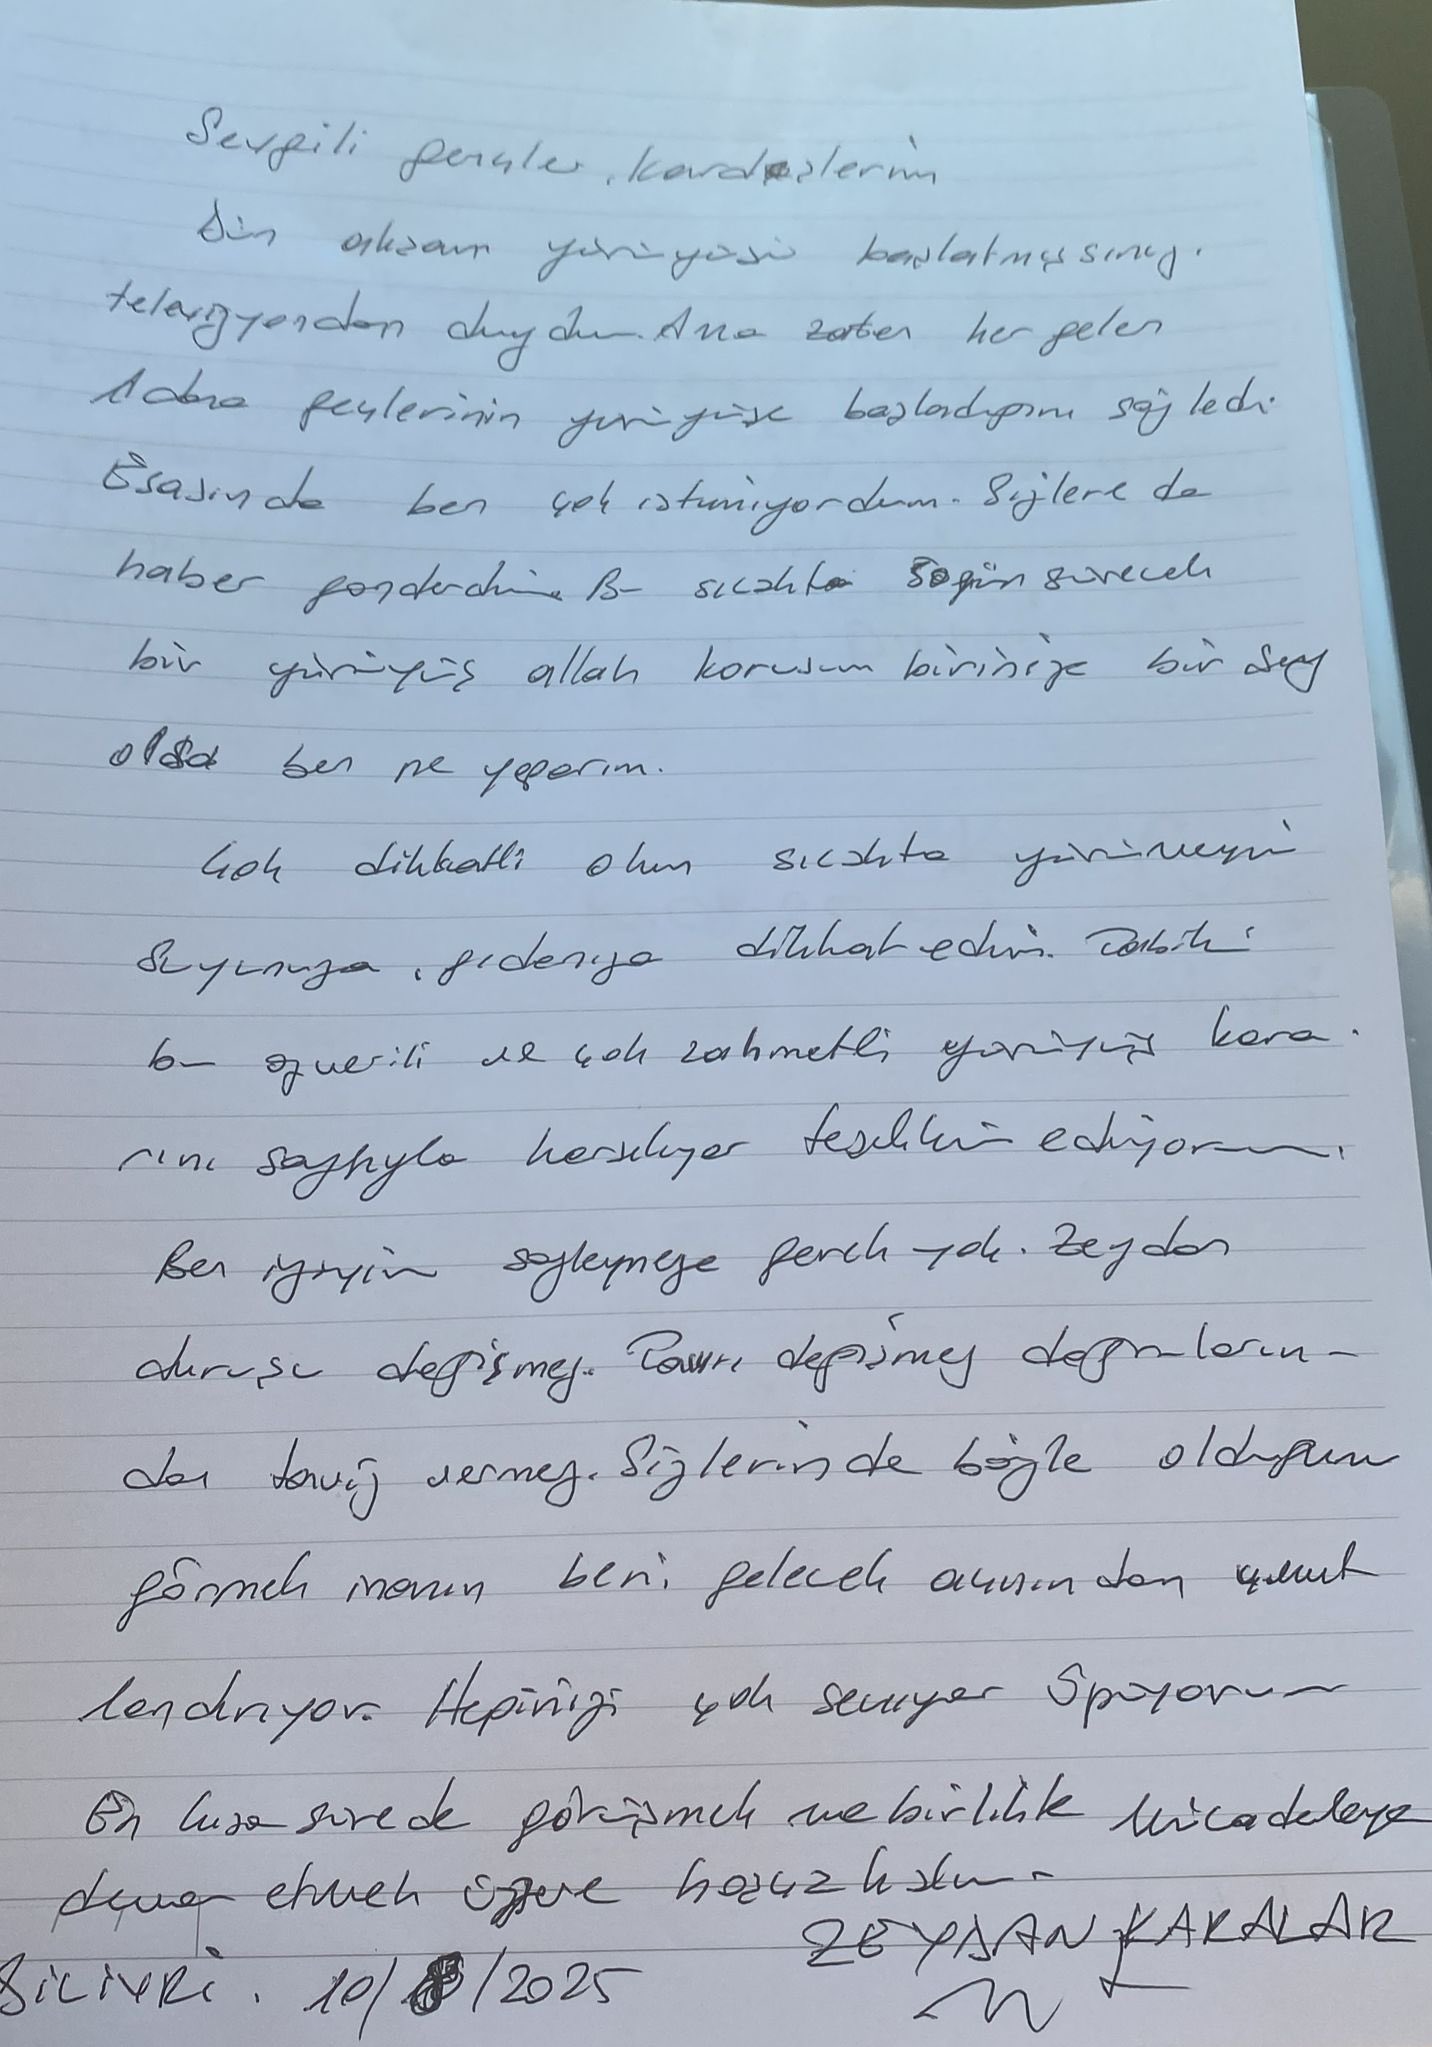 Sevgili gençler, kardeşlerim
Dün akşam yürüyüşü başlatmışsınız.
televizyondan duydum. Ama zaten her gelen
Adana gençlerinin yürüyüşe başladığını söyledi.
Esasında ben çok istemiyordum. Sizlere de
haber gönderdim. Bu sıcakta gün sürecek
bir yürüyüş allah korusun birinize bir şey
olsa ben ne yaparım.
Çok dikkatli olun sıcakta yürümeyin
Suyunuza, gıdanıza dikkat edin. Tabiki
bu özverili ve çok zahmetli yürüyüş kara-
rını saygıyla karşılıyor teşekkür ediyorum.
Ben iyiyim söylemeye gerek yok. Zeydan
duruşu değişmez. Tavrı değişmez doğruların-
dan taviz vermez. Sizlerinde böyle olduğunu
görmek inanın beni gelecek açısından umut
lendiriyor. Hepinizi çok seviyor öpüyorum
En kısa sürede görüşmek ve birlikte mücadeleye
devam etmek üzere hoşça kalın.
ZEYDAN KARALAR
SİLİVRİ. 10/8/2025